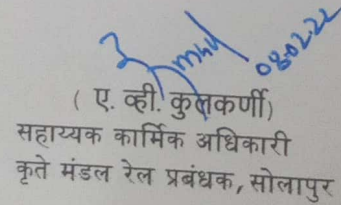 08-02-22
( ए. व्ही. कुलकर्णी)
सहाय्यक कार्मिक अधिकारी
कृते मंडल रेल प्रबंधक, सोलापुर